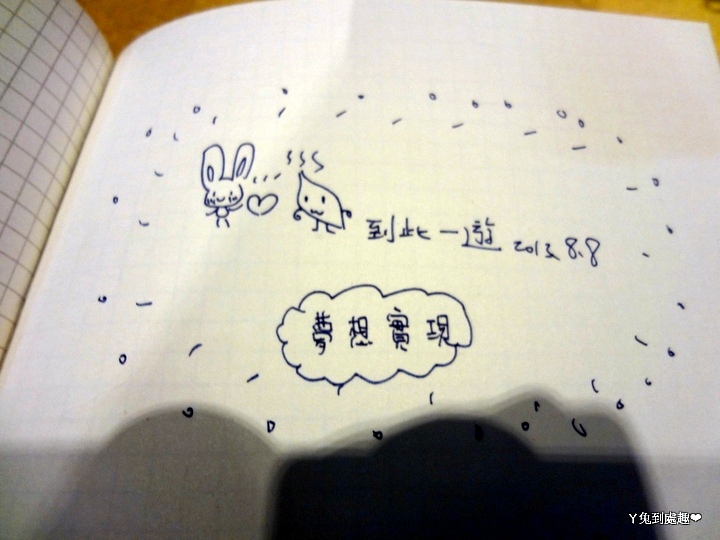 到此一遊 2013.8.8
夢想實現
Y兔到處趣❤